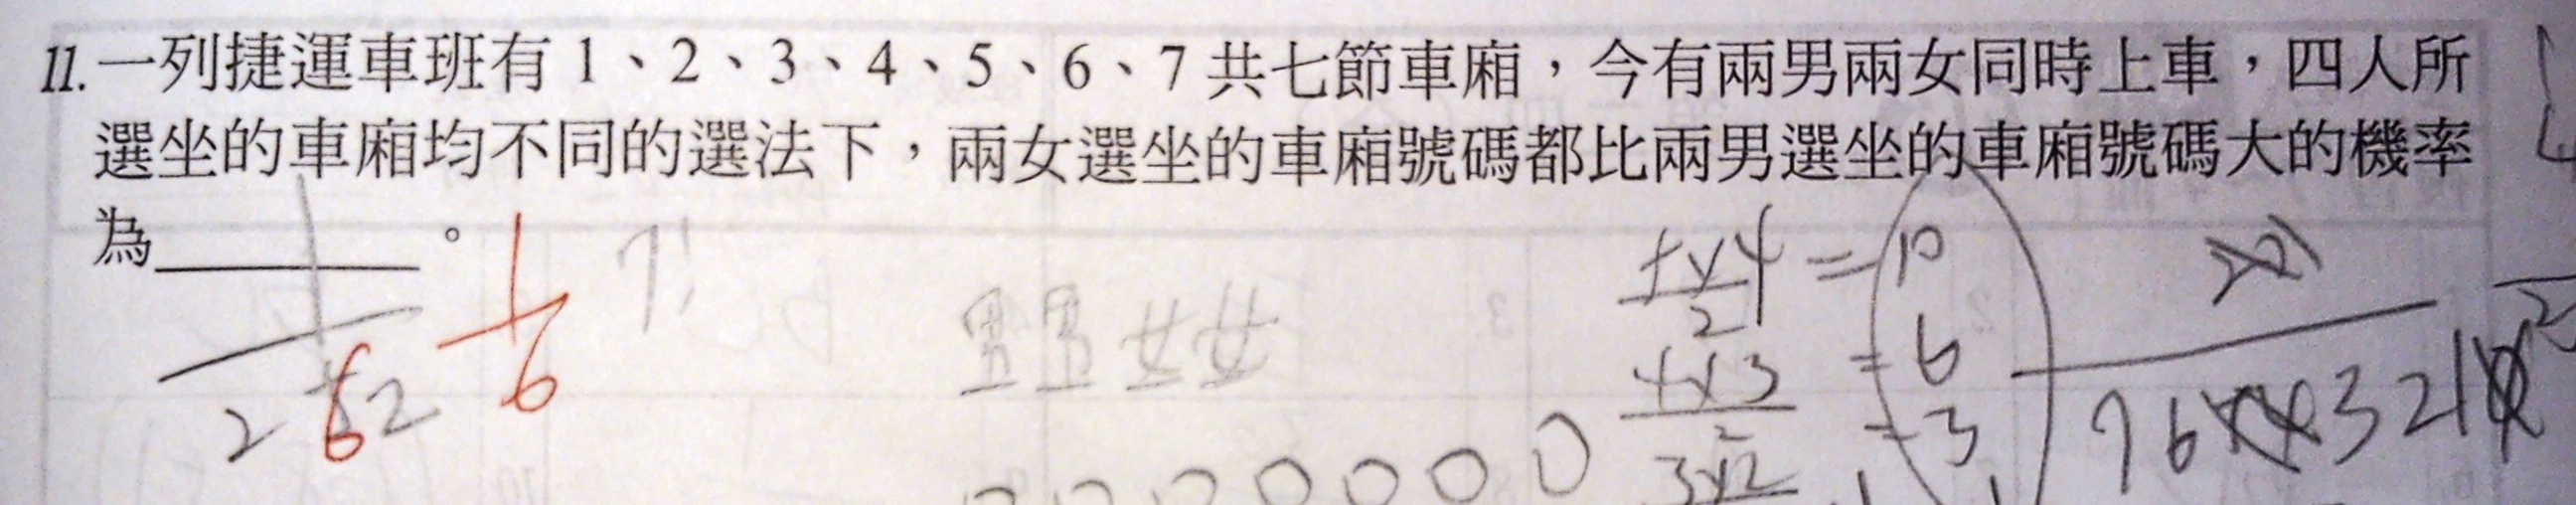 11.一列捷運車班有 1、2、3、4、5、6、7 共七節車廂，今有兩男兩女同時上車，四人所
選坐的車廂均不同的選法下，兩女選坐的車廂號碼都比兩男選坐的車廂號碼大的機率
為________。
1/6
7!
男男女女
5×4/2 = 10
4×3/2 = 6
3×2 = 3